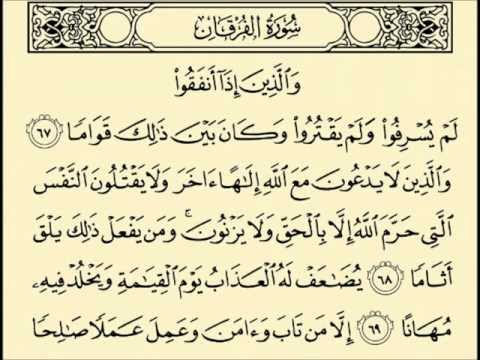 سُورَةُ الفُرْقَان
وَالَّذِينَ إِذَآ أَنفَقُوا۟
لَمْ يُسْرِفُوا۟ وَلَمْ يَقْتُرُوا۟ وَكَانَ بَيْنَ ذَٰلِكَ قَوَامًا ٦٧
وَالَّذِينَ لَا يَدْعُونَ مَعَ اللَّهِ إِلَٰهًا ءَاخَرَ وَلَا يَقْتُلُونَ النَّفْسَ
الَّتِي حَرَّمَ اللَّهُ إِلَّا بِالْحَقِّ وَلَا يَزْنُونَ ۚ وَمَن يَفْعَلْ ذَٰلِكَ يَلْقَ
أَثَامًا ٦٨ يُضَٰعَفْ لَهُ الْعَذَابُ يَوْمَ الْقِيَٰمَةِ وَيَخْلُدْ فِيهِۦ
مُهَانًا ٦٩ إِلَّا مَن تَابَ وَءَامَنَ وَعَمِلَ عَمَلًا صَٰلِحًا